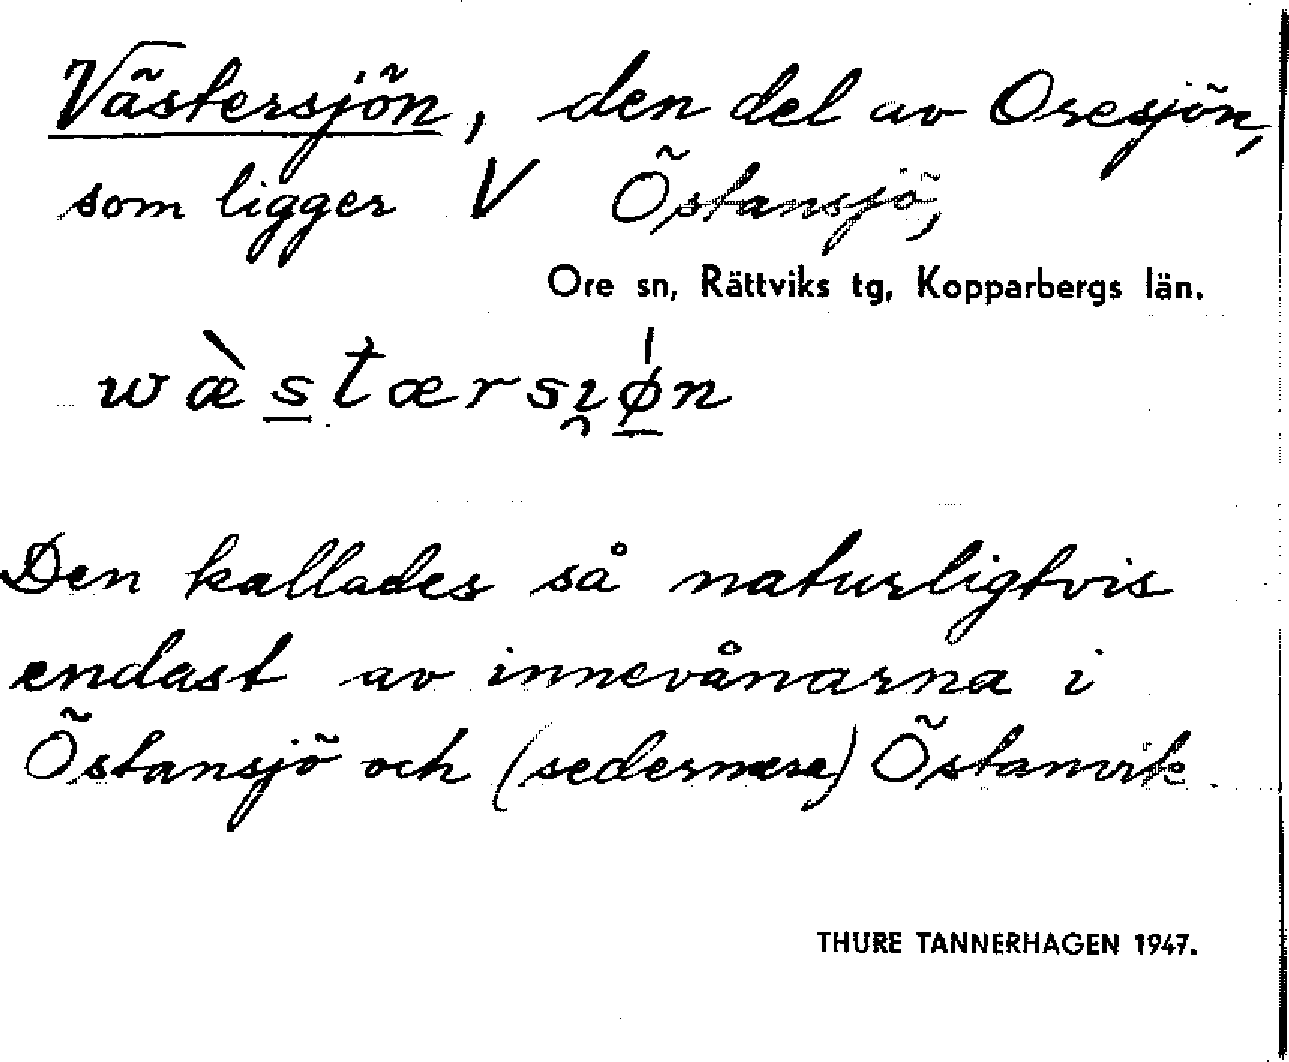 Västersjön, den del av Oresjön,
som ligger V Östansjö,
Ore sn, Rättviks tg, Kopparbergs län.
wæ̀s̲tærsı̯ǿ̲n
Den kallades så naturligtvis
endast av innevånarna i
Östansjö och (sedermera) Östanvik.
THURE TANNERHAGEN 1947.